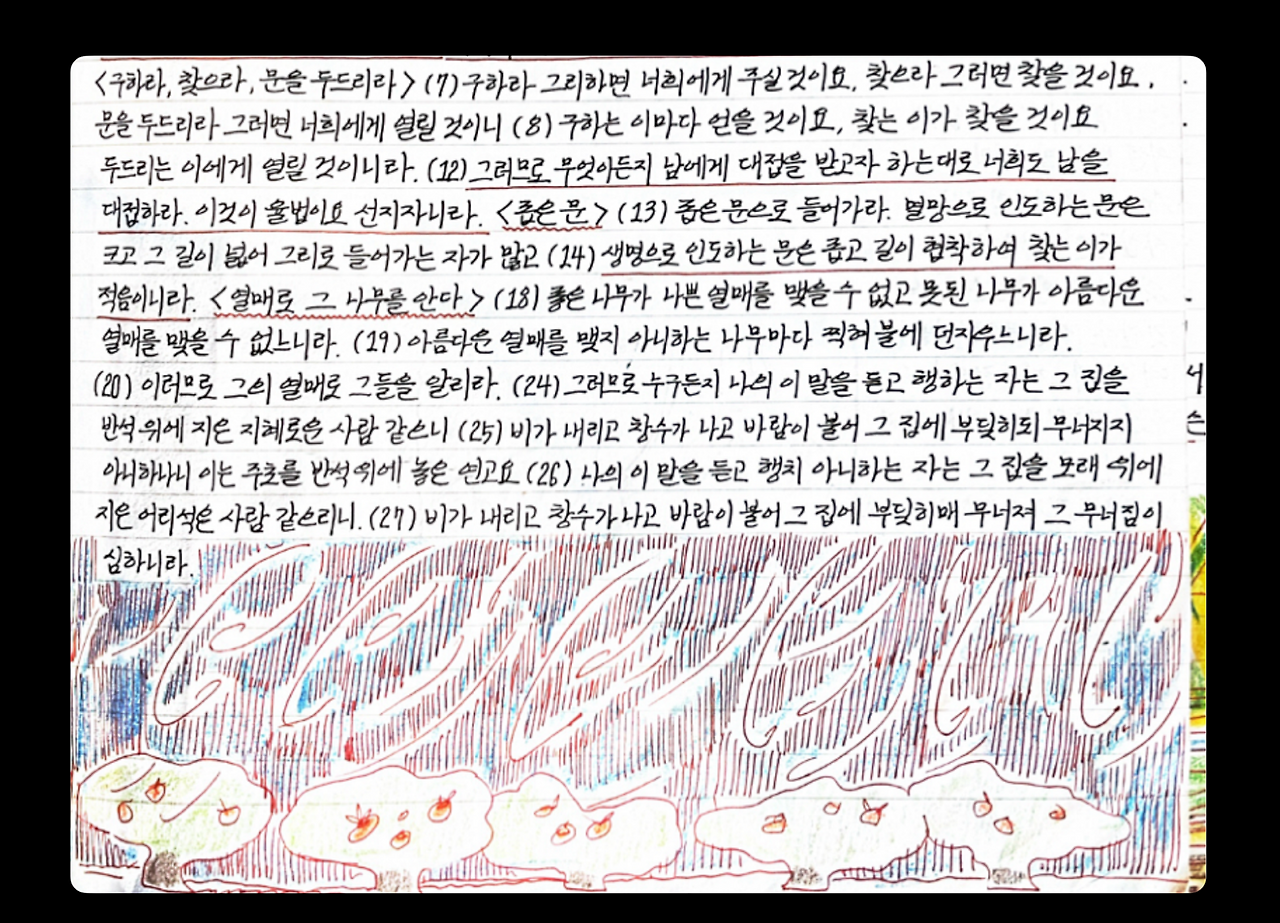 <구하라, 찾으라, 문을 두드리라> (7) 구하라 그리하면 너희에게 주실 것이요, 찾으라 그러면 찾을 것이요,
문을 두드리라 그러면 너희에게 열릴 것이니 (8) 구하는 이마다 얻을 것이요, 찾는 이가 찾을 것이요
두드리는 이에게 열릴 것이니라. (12) 그러므로 무엇이든지 남에게 대접을 받고자 하는대로 너희도 남을
대접하라. 이것이 율법이요 선지자니라. <좁은 문> (13) 좁은 문으로 들어가라. 멸망으로 인도하는 문은
크고 그 길이 넓어 그리로 들어가는 자가 많고 (14) 생명으로 인도하는 문은 좁고 길이 협착하여 찾는 이가
적음이니라. <열매로 그 나무를 안다> (18) 좋은 나무가 나쁜 열매를 맺을 수 없고 못된 나무가 아름다운
열매를 맺을 수 없느니라. (19) 아름다운 열매를 맺지 아니하는 나무마다 찍혀 불에 던지우느니라.
(20) 이러므로 그의 열매로 그들을 알리라. (24) 그러므로 누구든지 나의 이 말을 듣고 행하는 자는 그 집을
반석 위에 지은 지혜로운 사람 같으니 (25) 비가 내리고 창수가 나고 바람이 불어 그 집에 부딪히되 무너지지
아니하나니 이는 주초를 반석 위에 놓은 연고요 (26) 나의 이 말을 듣고 행치 아니하는 자는 그 집을 모래 위에
지은 어리석은 사람 같으리니. (27) 비가 내리고 창수가 나고 바람이 불어 그 집에 부딪히매 무너져 그 무너짐이
심하니라.